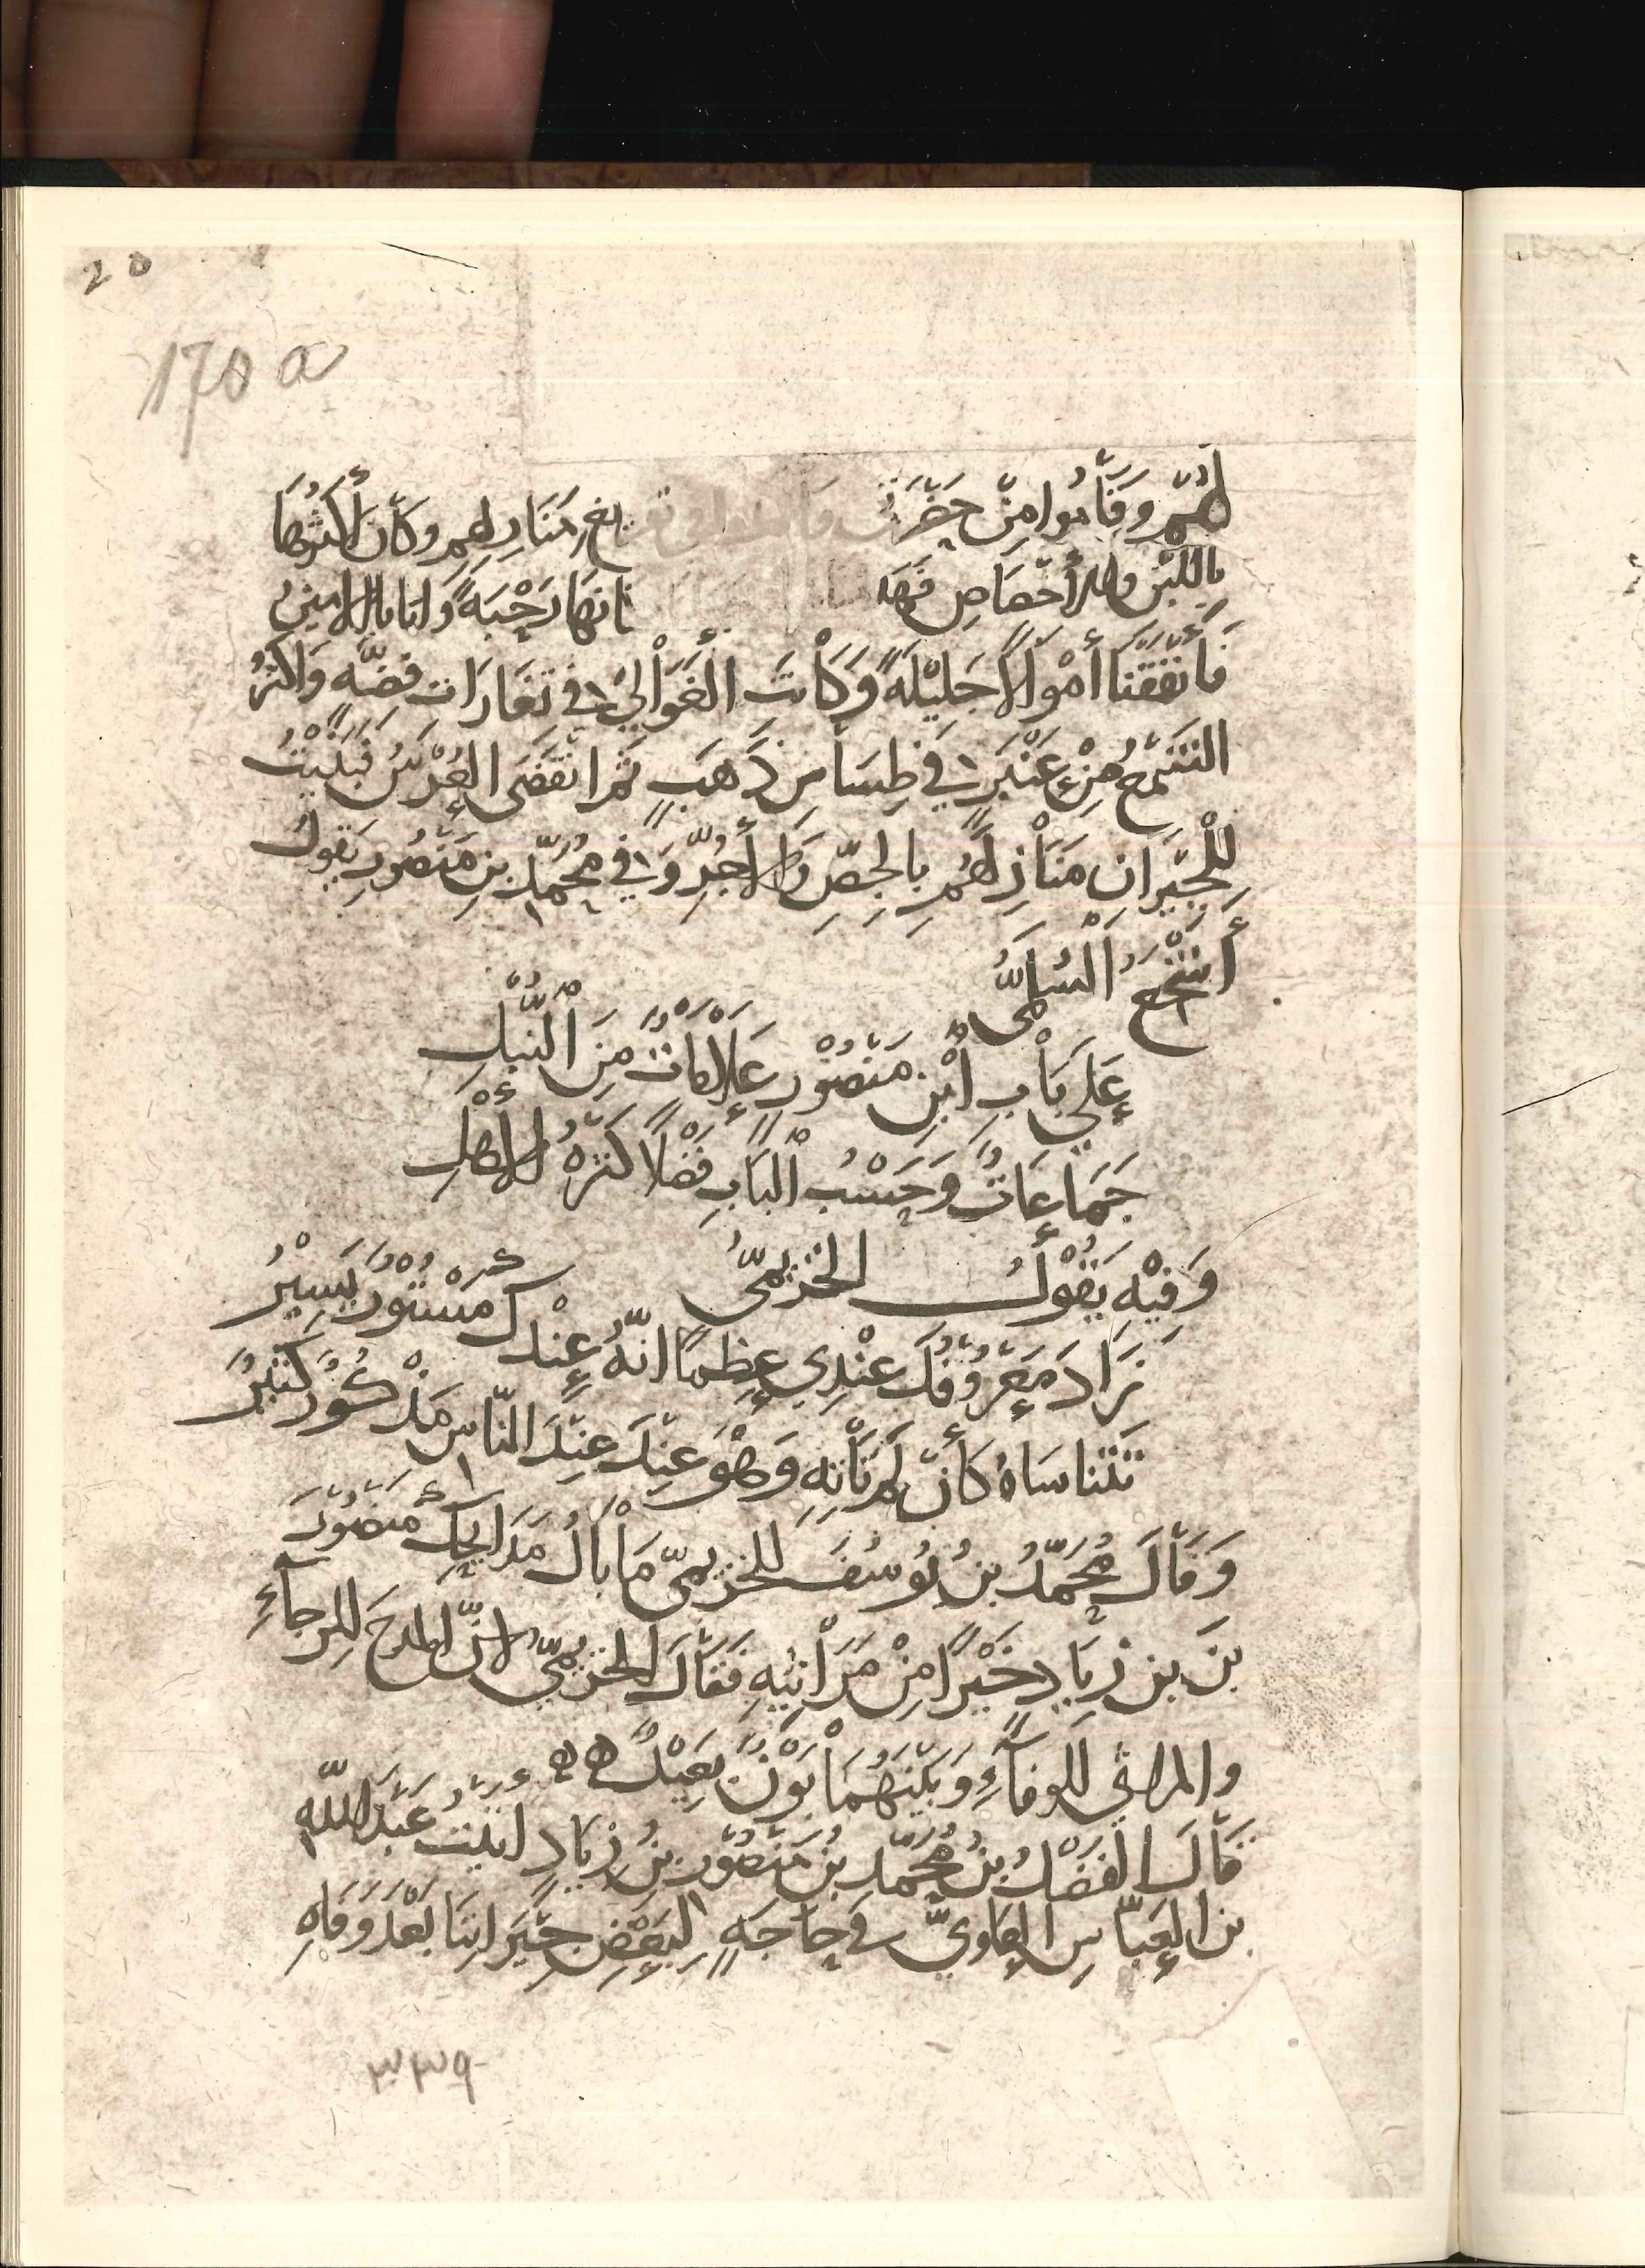 20
170 a
لَهُمْ وَقَامُوا مِنْ حَضْرَتِي مَنَازِلِهِم وكَانَ أَكْثَرُهَا
بِاللَّبِنِ والأَخْصَاصِ رَحْبَةً وَاتانا الامينُ
فَأَنفَقْنَا أَمْوَالًا جَلِيْلَةً وَكَانَتِ الْغَوَالِيُ فِي تَغَارَاتِ فِضَّةٍ وَاكثَرُ
الشَّمْعِ مِنْ عَنْبَرٍ فِي طِسَاسِ ذَهَبٍ ثُمَّ انْقَضَى العُرْسُ فَبَنَيْتُ
لِلْجِيْرَانِ مَنَازِلَهُمْ بِالجِصِّ وَالآجُرِّ وَفِي مُحَمَّدِ بنِ مَنْصُورٍ يَقولُ
أَشْجَعُ السُّلَمِيُّ
عَلَى بَابِ ابْنِ مَنْصُوْرٍ عَلَامَاتٌ مِنَ النُّبْلِ
جَمَاعَاتٌ وَحَسْبُ الْبَابِ فَضْلًا كَثْرَةُ الأَهْلِ
وَفِيْهِ يَقُوْلُ الخُزَيمِيُّ
زَادَ مَعْرُوْفَكَ عِنْدِي عِظَمًا انّهُ عِنْدَكَ مَسْتُوْرٌ يَسِيْرُ
تَتَنَاسَاهُ كَأَنْ لَمْ تَأْتِهِ وَهْوَ عِنْدَ عِنْدَ النّاسِ مَذْكُوْرٌ كَثِيْرُ
وَقَالَ مُحَمَّدُ بنُ يُوسُفَ للخزيميّ مَا بَالُ مَدَايِحِكَ مَنْصُوْرَ
بنَ بن زِيَادٍ خَيْرًا مِنْ مَرَاثِيْهِ فَقَالَ الخزيميُّ لانّ المدحَ لِلرجآءِ
والمراثي للوفآءِ وَبَيْنَهُمَا بَوْنٌ بَعِيْدٌ ه ه
قَالَ الفَضْلُ بنُ مُحَمَّدِ بنِ مَنْصُوْرِ بنِ زِيَادٍ اتيْتُ عَبْدَ اللّهِ
بن العَبّاسِ العَلويَّ في حَاجَةٍ لِبَعْضِ جِيْرَانِنَا بَعْدَ وَفَاةِ
٣٣٩